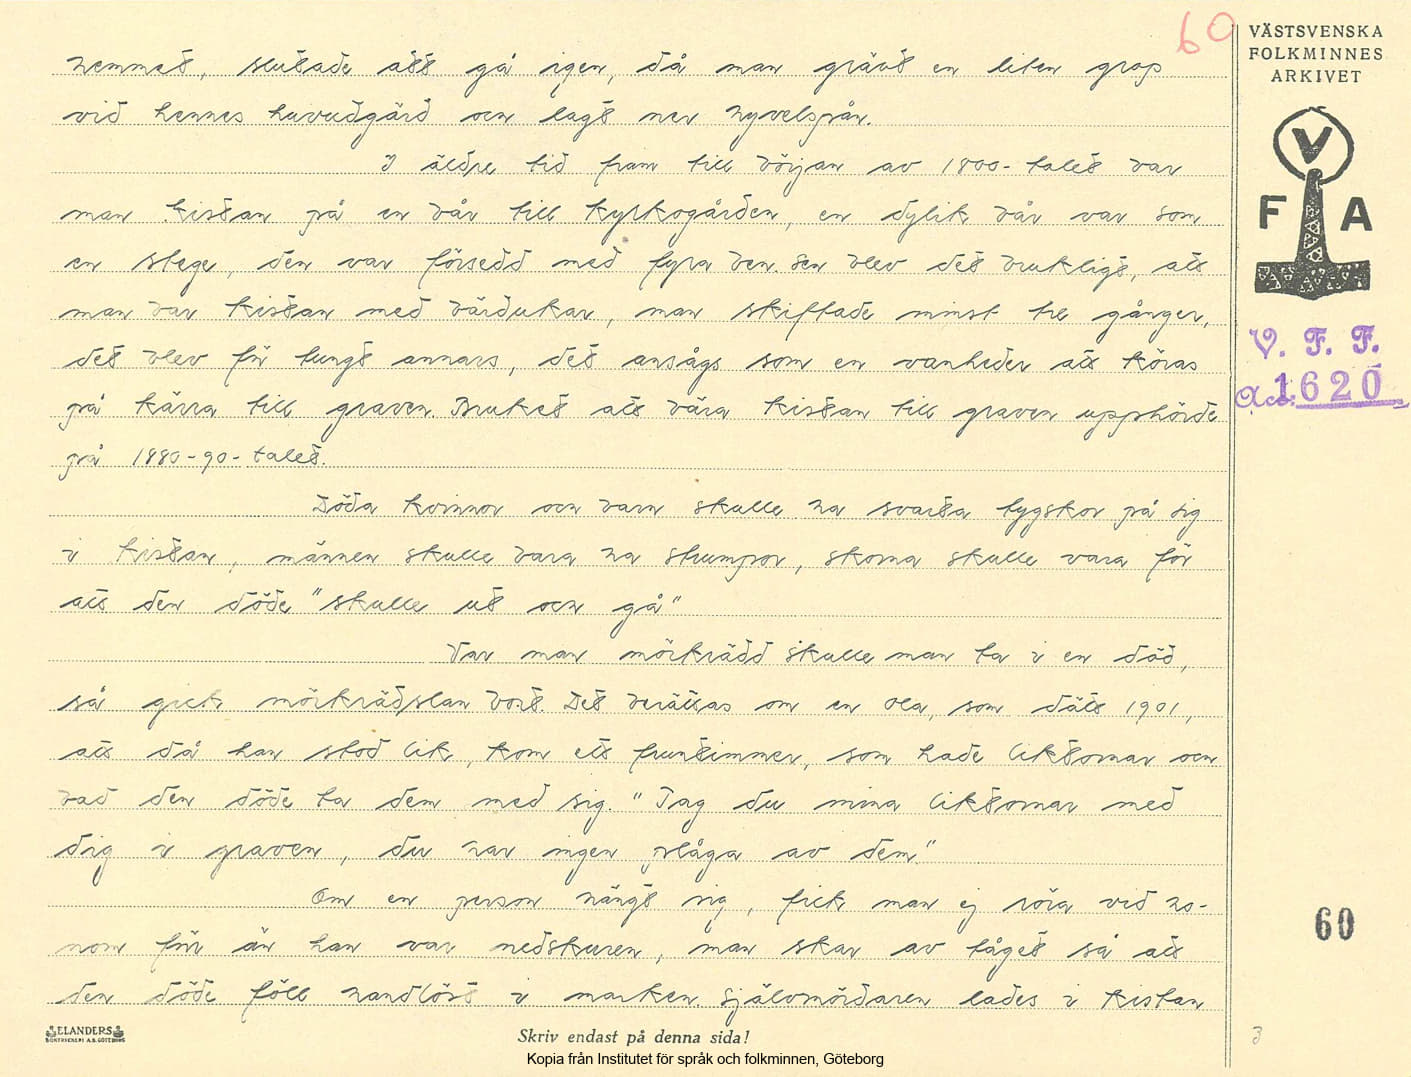 60
VÄSTSVENSKA
FOLKMINNES
ARKIVET
V
F A
V. F. F.
Acc. 1620
hemmet, slutade att gå igen, då man grävt en liten grop
vid hennes huvudgärd och lagt ner hyvelspån.
I äldre tid fram till början av 1800-talet bar
man kistan på en bår till kyrkogården, en dylik bår var som
en stege, den var försedd med fyra ben. Sen blev det brukligt, att
man bar kistan med bärdukar, man skiftade minst tre gånger,
det blev för tungt annars, det ansågs som en vanheder att köras
på kärra till graven. Bruket att bära kistan till graven upphörde
på 1880-90-talet.
Döda kvinnor och barn skulle ha svarta tygskor på sig
i kistan, männen skulle bara ha strumpor, skorna skulle vara för
att den döde "skulle ut och gå"
Var man mörkrädd skulle man ta i en död,
så gick mörkrädslan bort. Det berättas om en Ola, som dött 1901,
att då han stod lik, kom ett fruntimmer, som hade liktornar och
bad den döde ta dem med sig. "Tag du mina liktornar med
dig i graven, du har ingen plåga av dem"
Om en person hängt sig, fick man ej röra vid ho-
nom förr än han var nedskuren, man skar av tåget så att
den döde föll handlöst i marken. Självmördaren lades i kistan
60
ELANDERS
BOKTRYCKERI A.B. GÖTEBORG
Skriv endast på denna sida!
3
Kopia från Institutet för språk och folkminnen, Göteborg